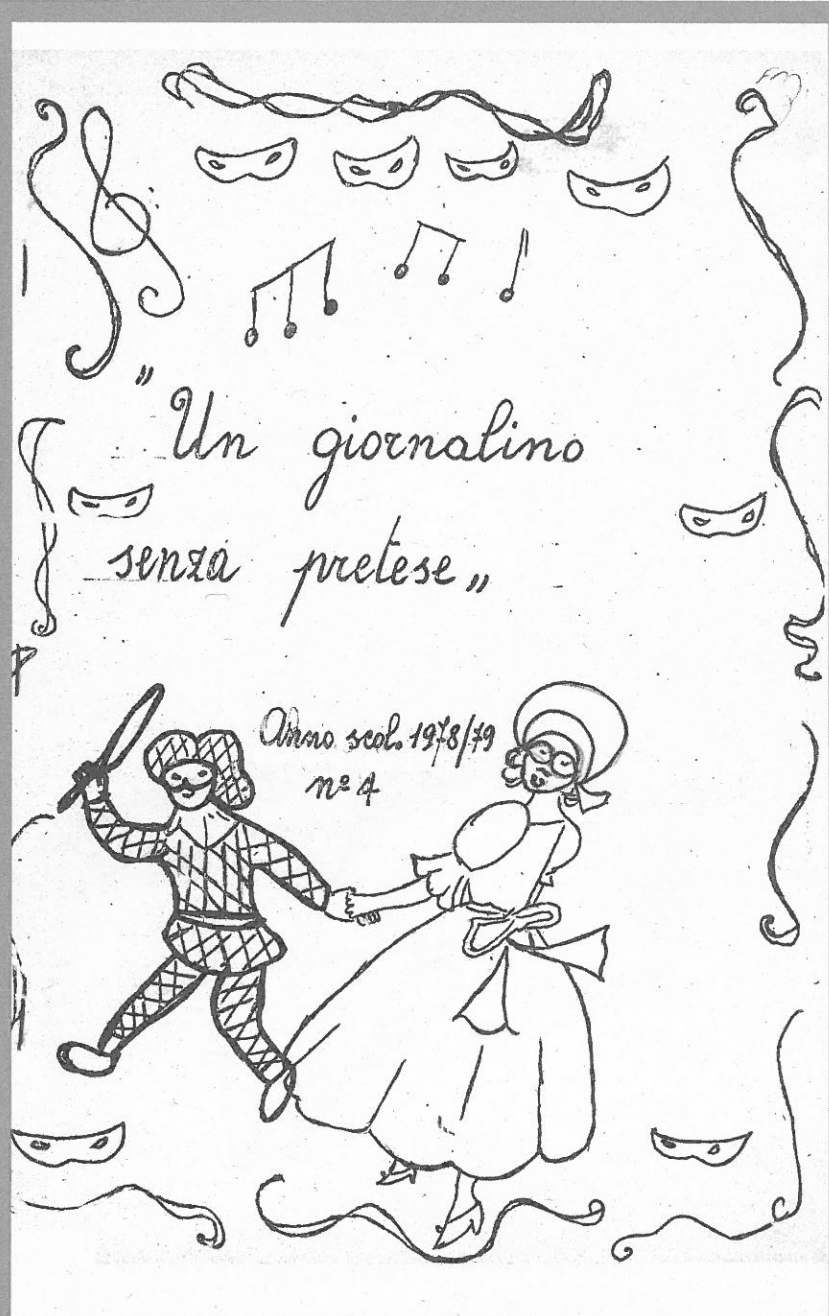 "Un giornalino
senza pretese„
Anno scol. 1978/79
nº 4